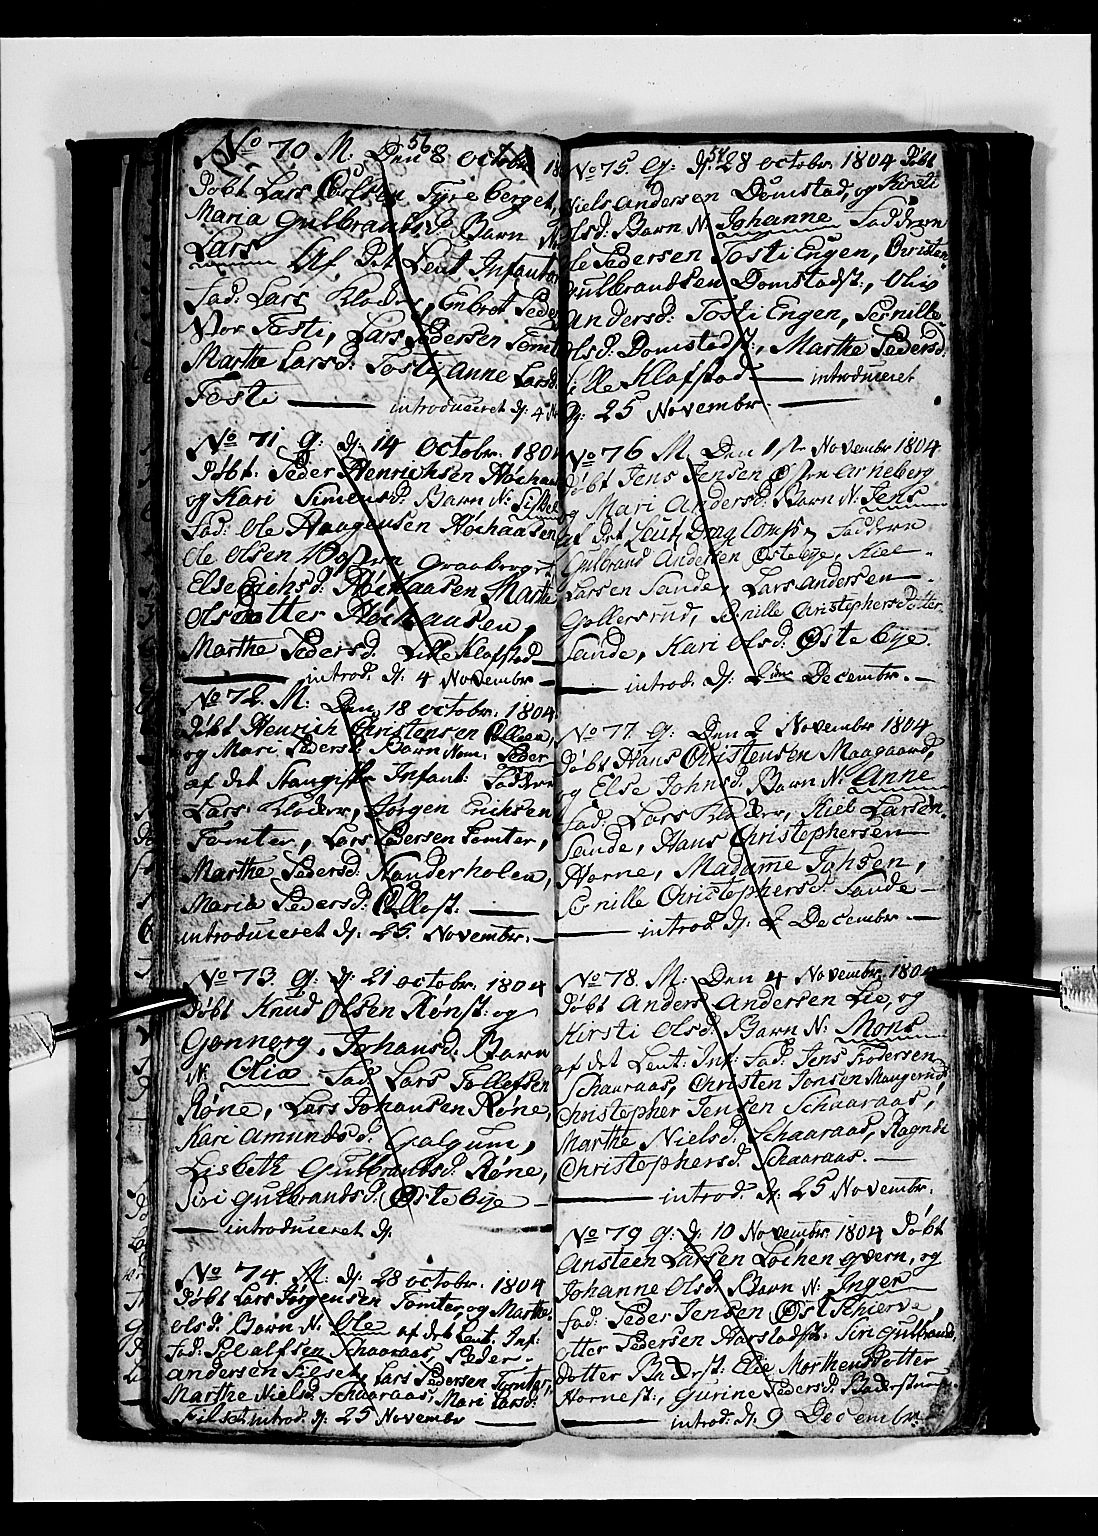 56
No 70 M. Den 8 octobr 18
Døbt Lars Olsen Fyrieberget,
Maria Gulbrandsd: Barn N:
Lars Af Det Leut Infanter
Fad: Lars Kloder, Enbret Peder
Nor Fosti, Lars Pedersen Tomt
Marthe Larsd: Foste, Anne Larsd:
Foste — introduceret d: 4 No
No 71 g: d: 14 Octobr. 1804
Døbt. Peder Henrichsen Høihaa
og Kari Simensd: Barn N: Sissel
Fad: Ole Haagensen Høihaasen
Ole Olsen graaberg
Else Erichsd: Høihaasen Marthe
Olsdotter Høihaasen,
Marthe Pedersd. Lille Klofstad —
— introd. d: 4 Novembr —
No 72. M: Den 18 octobr. 1804
Døbt Henrich Christensen
og Mari Pedersd Barn Nom: Peder
af det Infant: Faddern
Lars Kloder, Jørgen Erichsen
Tomter, Lars Pedersen Tomter,
Marthe Pedersd: Honderholen,
Maria Pedersd: —
introduceret d: 25. Novembr. —
No 73. g: d: 21 octobr. 1804
Døbt Knud Olsen Rønst: og
Gønnerg. Johansd: Barn
N: Elia Fad Lars Tollefsen
Røne, Lars Johansen Røne,
Kari Amundsd. Galgum,
Lisbeth Gulbrandsd: Røne,
Siri Gulbrandsd. Østebye —
— introduceret d:
No 74. M: d: 28 octobr. 1804
Døbt Lars Jørgensen Tomter, og Marthe
Olsd: Barn N: Ole af det Leut: Inf:
Fad: Schaaraas, Peder
Andersen Filset, Lars Pedersen Tomter,
Marthe Nielsd. Schaaraas, Mari Larsd:
Filset introd. d: 25 November —
57
No 75. g: d: 28 octobr. 1804 Døbt
Niels Andersen Domstad, og Kirsti
Olsd: Barn N: Johanne Faddern
Ole Pedersen Fosti Engen, Christen
Gulbrandsen Domstadst:, Oliv
Andersd: Fosti Engen, Pernille
Olsd: Domstadst:, Marthe Pedersd.
Lille Klofstad — introduceret
d: 25 Novembr. —
No 76 M. Den 1st Novembr 1804
Døbt Jens Jensen Østre Arneberg
og Mari Andersd: Barn N: Jens
af det Leut: Drag Comp: Faddern
Gulbrand Andersen Østebye, Kiel
Larsen Sande, Lars Andersen —
Gollersrud, Pernille Christophersdotter
Sande, Kari Olsd: Østebye.
— introd. d: 2den Decembr. —
No 77 g: Den 2 Novembr 1804
Døbt Hans Christensen Maagaard,
og Else Johnsd. Barn N: Anne
Fad: Lars Kloder, Kiel Larsen
Sande, Hans Christophersen
Horne, Madamme Johsen,
Pernille Christophersd. Sande —
— introd. d: 2 Decembr —
No 78. M: Den 4 Novembr. 1804
Døbt Anders Andersen Lie, og
Kirsti Olsd: Barn N: Mons
af det Leut: Inf: Fad: Jens Pedersen
Schaaraas, Christen Jonsen Maugerud,
Christopher Jensen Schaaraas,
Marthe Nielsd: Schaaraas, Ragnil
Christophersd. Schaaraas. —
— introd. d: 25 Novembr.
No 79 g: d: 10 Novembr. 1804 Døbt
Ansteen Larsen Løchen qvern, og
Johanne Olsd: Barn N: Inger
Fad: Peder Jensen Øst Schierve,
Otter Pedersen Harstadst: Siri Gulbrands
dotter Baderst: Elie Morthensdotter
Hornest:, Gurine Pedersd: Baderstuen
— introd. d: 9 Decembr.